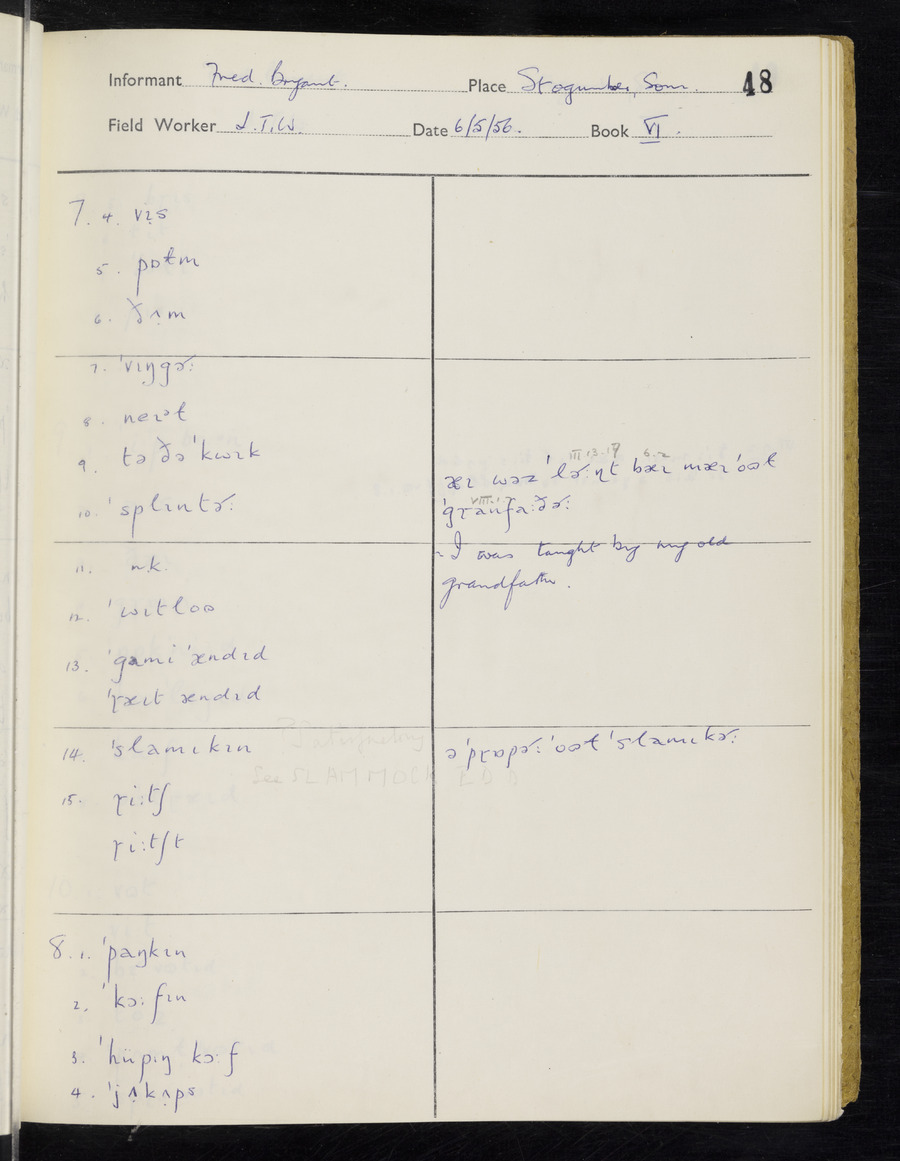 Informant Fred. Bryant. Place Stogumber, Som. 48
Field Worker J.T.W. Date 6/5/56. Book VI.
7. 4. vɪ̣s
5. pɒɫm
6. ðʌ̣m
7. ˈvɪŋgɚː
8. neɪəɫ
9. tə ðə ˈkwɪk
10. ˈsplɪntɚː
11.
12. ˈwɪtloʊ
13. ˈgami ˈændɪd
ˈɽæɪt ændɪd
14. ˈslamɪkɪn
See SLAMMOCK E D D
15. ɽiːtʃ
ɽiːtʃt
8. 1. ˈpaŋkɪn
2. ˈkɔːfɪn
3. ˈhüpɪŋ kɔːf
4. ˈjʌ̣kʌ̣ps
III 13.17 6.2
æɪ wəz ˈlɚːṇt bæɪ mæɪ ˈoəɫ
VIII.1
ˈgɽanfaːðɚː
~ I was taught by my old
grandfather.
ə ˈpɽɒpɚː ˈoəɫ ˈslamɪkɚː